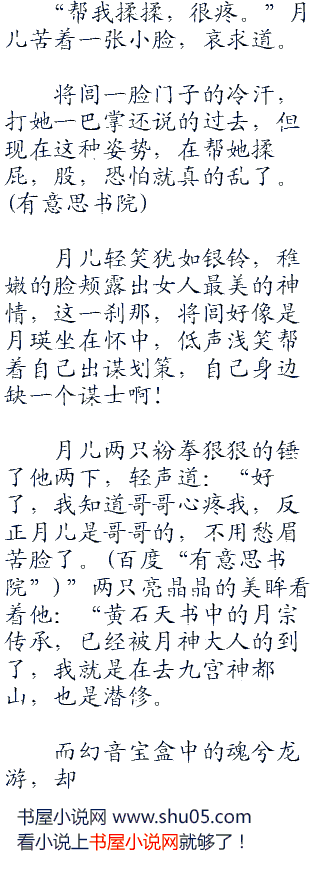 “帮我揉揉，很疼。”月
儿苦着一张小脸，哀求道。
将闾一脸门子的冷汗，
打她一巴掌还说的过去，但
现在这种姿势，在帮她揉
屁，股，恐怕就真的乱了。
(有意思书院)
月儿轻笑犹如银铃，稚
嫩的脸颊露出女人最美的神
情，这一刹那，将闾好像是
月瑛坐在怀中，低声浅笑帮
着自己出谋划策，自己身边
缺一个谋士啊！
月儿两只粉拳狠狠的锤
了他两下，轻声道：“好
了，我知道哥哥心疼我，反
正月儿是哥哥的，不用愁眉
苦脸了。(百度“有意思书
院”)”两只亮晶晶的美眸看
着他：“黄石天书中的月宗
传承，已经被月神大人的到
了，我就是在去九宫神都
山，也是潜修。
而幻音宝盒中的魂兮龙
游，却
书屋小说网 www.shu05.com
看小说上书屋小说网就够了！